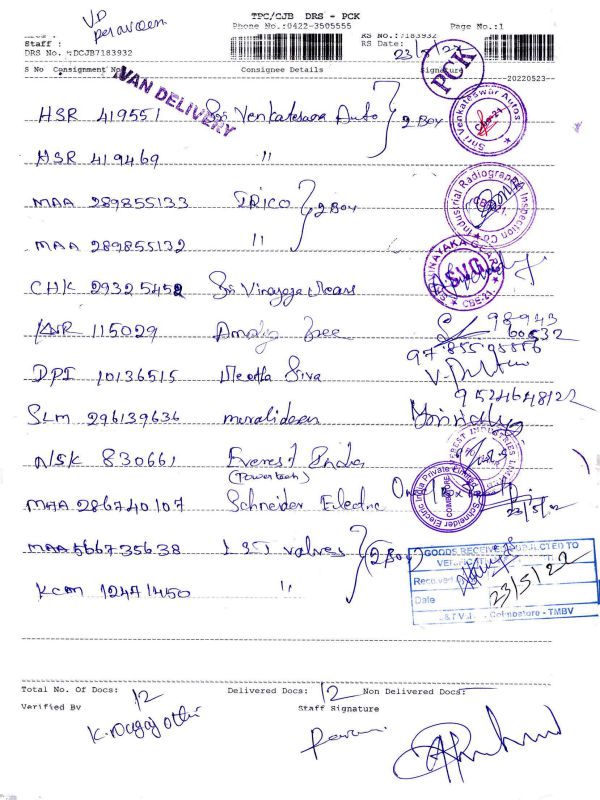 TPC/CJB DRS - PCK
VD
Phone No.:0422-3505555 Page No.:1
Staff : RS No.:7183932
DRS No. :DCJB7183932 RS Date: 23/5/22
S No Consignment No Consignee Details Signature
20220523
PCK
VAN DELIVERY
HSR 419551 Sri Venkateswara Auto 2 Box
Shri Venkateswar Autos
CBE-21
HSR 419469 "
MAA 289855133 IRICO 2 Box
Industrial Radiographic Inspection Co
MAA 289855132 "
CHK 29325452 Sri Vinayaga
SRI VINAYAKA GEARS
S.V.G
CBE-21.
KNR 115029
98943
60532
DPI 10136515 Siva
9524648122
SLM 296139636
NSK 830661 Everest India
(Powertech)
MAA 286740107 Schneider Electric
Schneider Electric India Private Limited
COIMBATORE
23/5/22
MAA 566735638 L&T valves (2 Box)
GOODS RECEIVED SUBJECTED TO
KCM 12471450 "
Received
Date 23/5/22
L&T V Coimbatore - TMBV
Total No. Of Docs: 12 Delivered Docs: 12 Non Delivered Docs:
Verified By Staff Signature